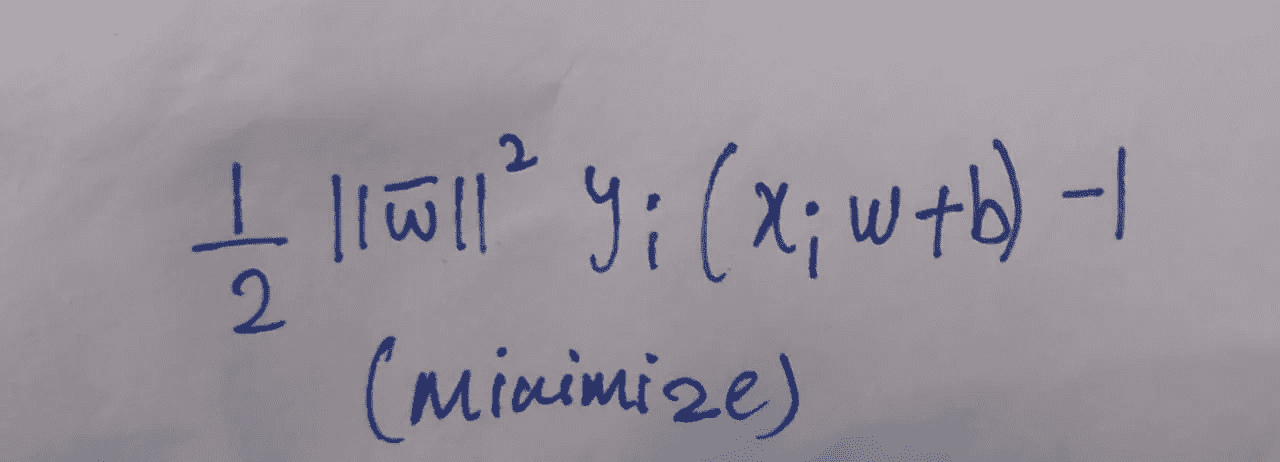 1/2 ||w̄||² yᵢ (xᵢ w+b) -1
(Minimize)